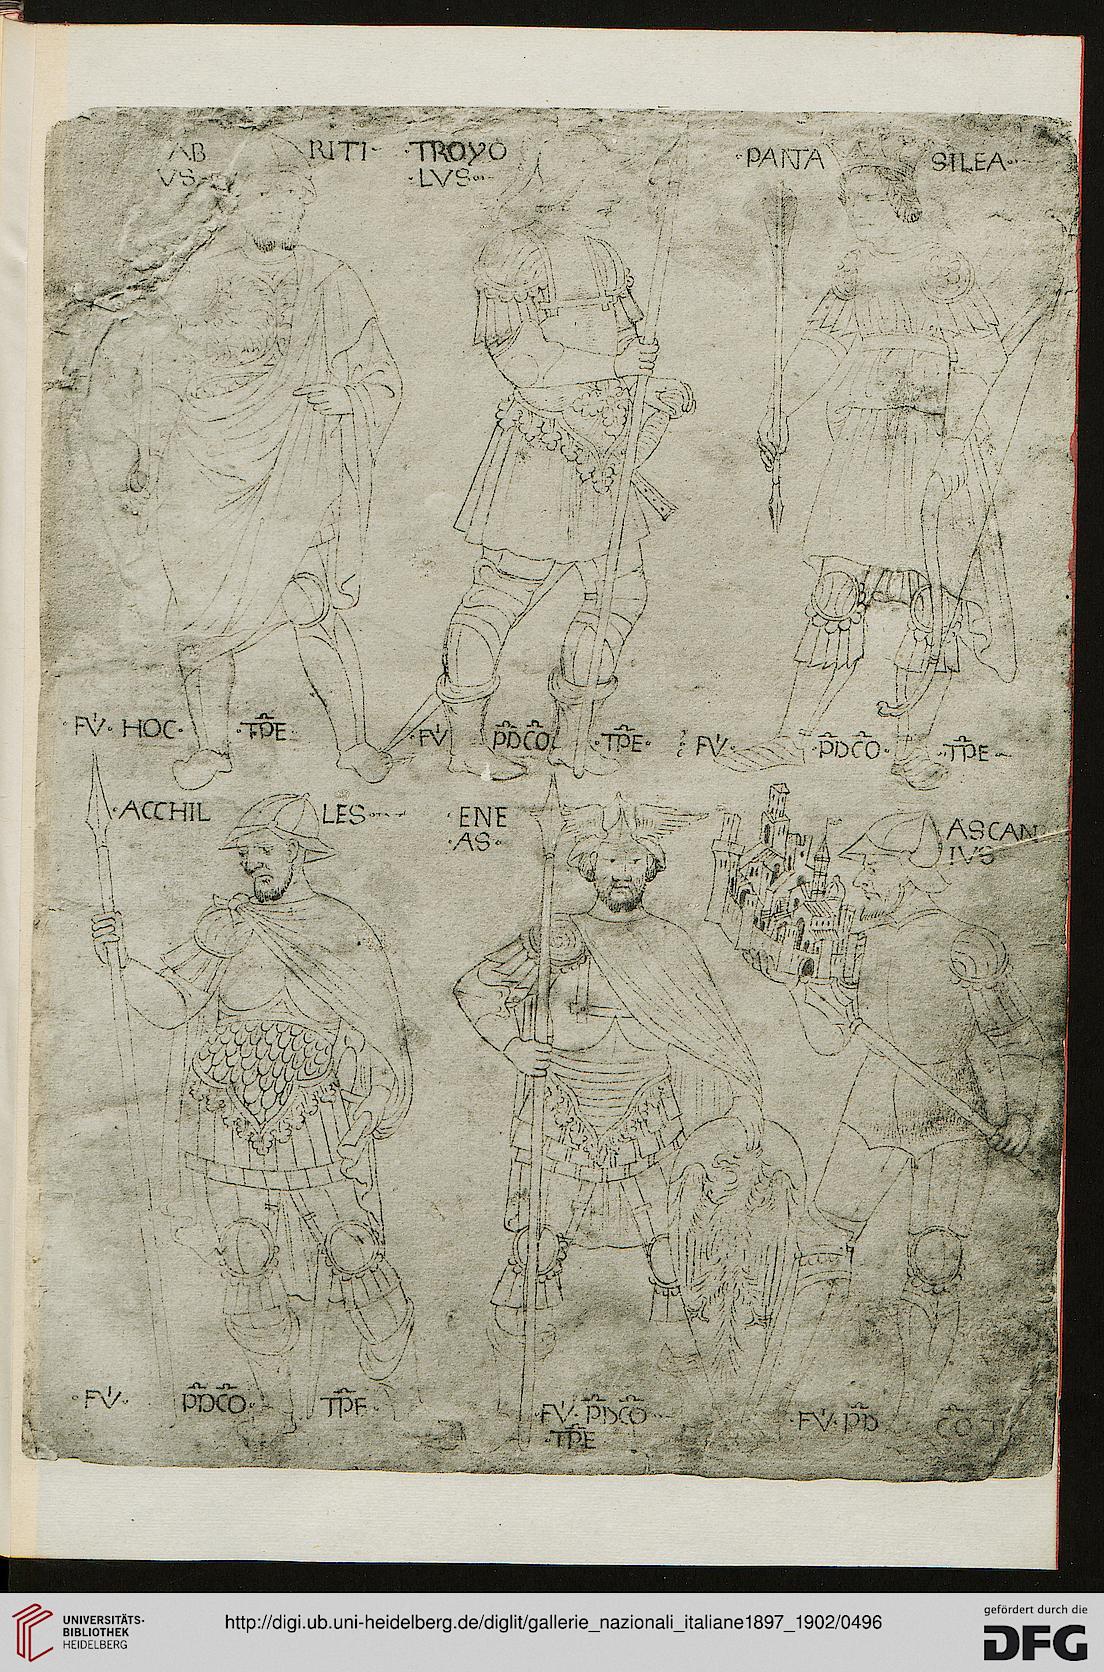 AB RITI
VS
·TROYO
·LVS·
·PANTA SILEA·
·FV· HOC· ·TPE·
·FV· PDCO· ·TPE·
·FV· ·PDCO· ·TPE·
·ACCHIL LES
ENE
·AS·
ASCAN
IVS
·FV· PDCO· TPE·
·FV· PDCO
·TPE
·FV· PD CO
UNIVERSITÄTS-
BIBLIOTHEK
HEIDELBERG
http://digi.ub.uni-heidelberg.de/diglit/gallerie_nazionali_italiane1897_1902/0496
gefördert durch die
DFG